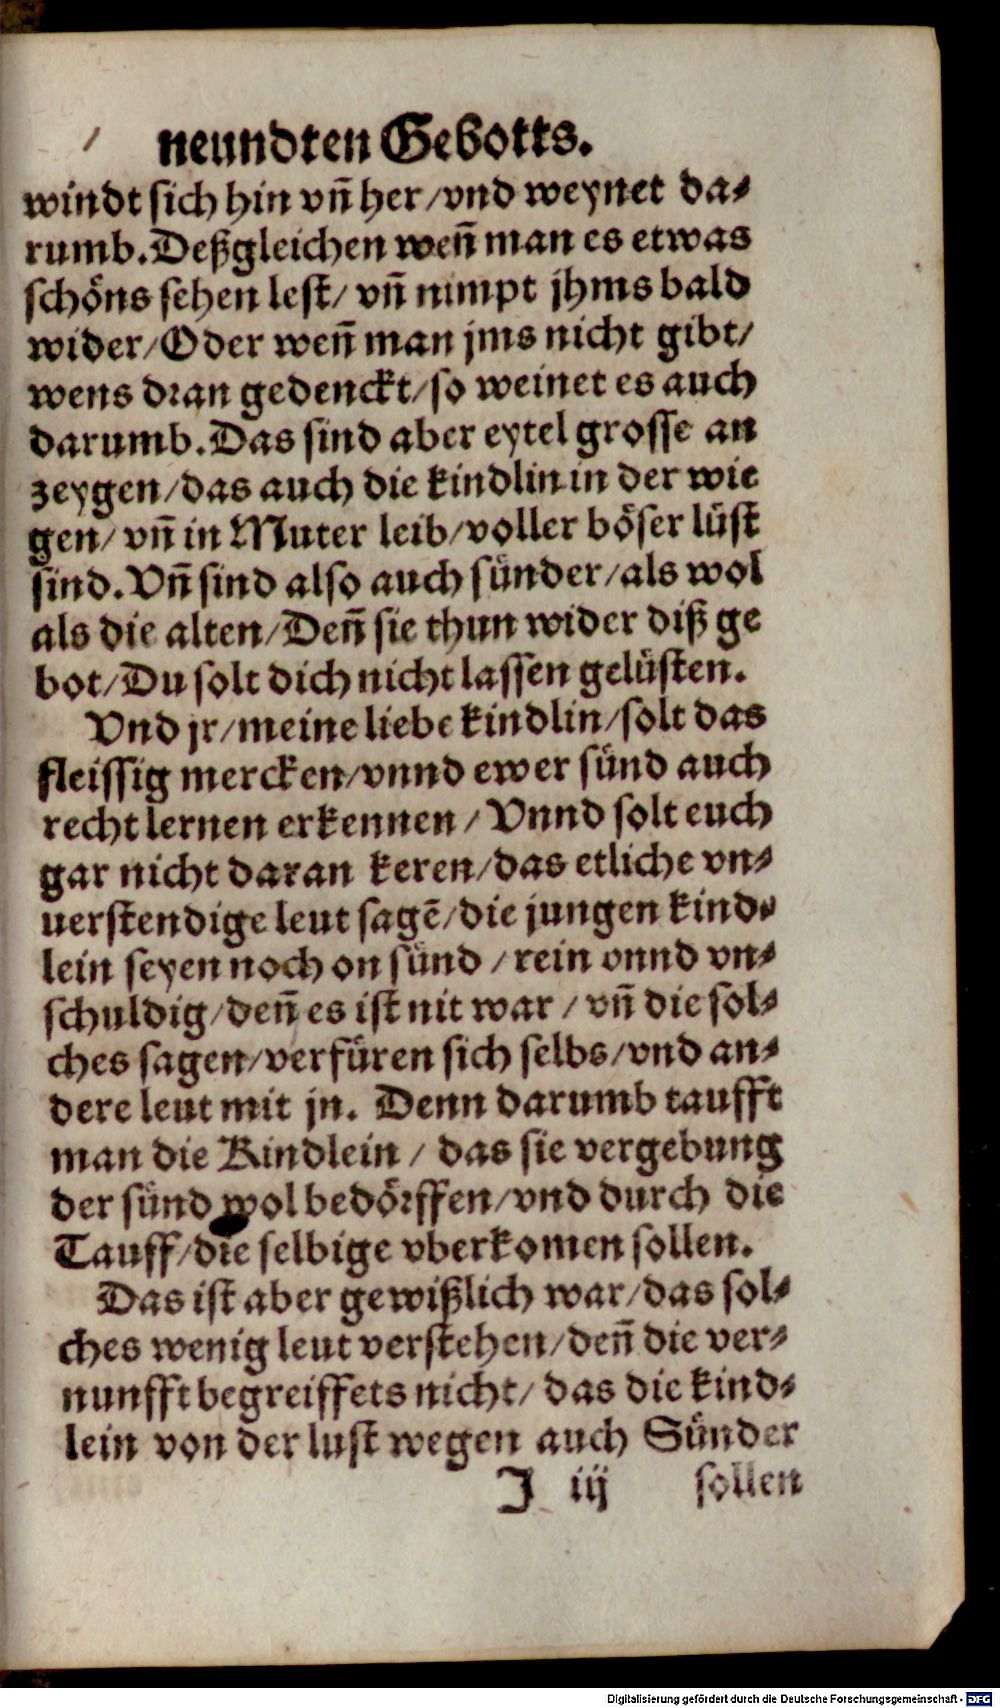 neundten Gebotts.
windt sich hin vñ her/vnd weynet da⸗
rumb.Deßgleichen weñ man es etwas
schöns sehen lest/ vñ nimpt jhms bald
wider/Oder weñ man jms nicht gibt/
wens dran gedenckt/so weinet es auch
darumb.Das sind aber eytel grosse an
zeygen/das auch die kindlin in der wie
gen/ vñ in Muter leib/voller böser lüst
sind.Vñ sind also auch sünder/als wol
als die alten/Deñ sie thun wider diß ge
bot/Du solt dich nicht lassen gelüsten.
Vnd jr/meine liebe kindlin/solt das
fleissig mercken/vnnd ewer sünd auch
recht lernen erkennen/Vnnd solt euch
gar nicht daran keren/das etliche vn⸗
uerstendige leut sagē/die jungen kind⸗
lein seyen noch on sünd/rein vnnd vn⸗
schuldig/deñ es ist nit war/vñ die sol⸗
ches sagen/verfüren sich selbs/vnd an⸗
dere leut mit jn. Denn darumb taufft
man die Kindlein/ das sie vergebung
der sünd wol bedörffen/vnd durch die
Tauff/die selbige vberkomen sollen.
Das ist aber gewißlich war/das sol⸗
ches wenig leut verstehen/deñ die ver⸗
nunfft begreiffets nicht/das die kind⸗
lein von der lust wegen auch Sünder
J iij sollen
Digitalisierung gefördert durch die Deutsche Forschungsgemeinschaft - DFG